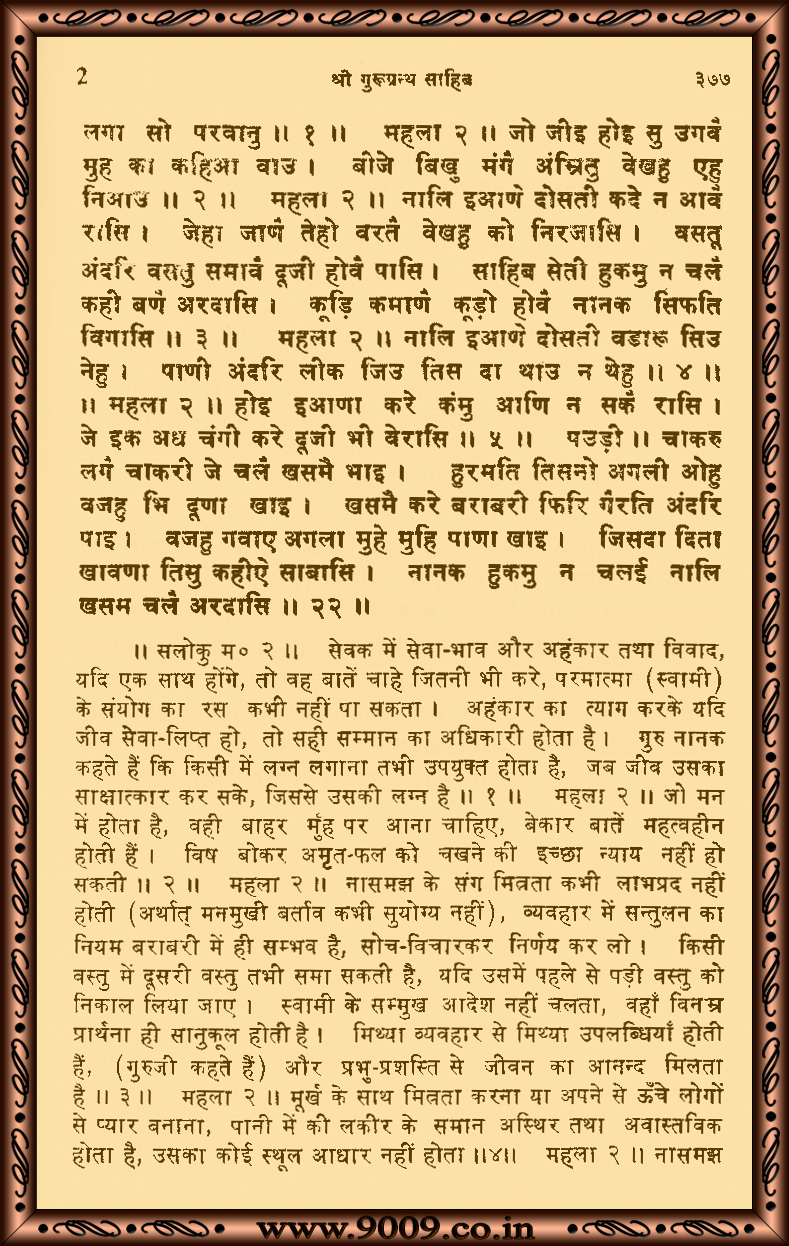 2 श्री गुरूग्रन्थ साहिब ३७७
लगा सो परवानु ॥ १ ॥ महला २ ॥ जो जीइ होइ सु उगवै
मुह का कहिआ वाउ । बीजे बिखु मंगै अंम्रितु वेखहु एहु
निआउ ॥ २ ॥ महला २ ॥ नालि इआणे दोसती कदे न आवै
रासि । जेहा जाणै तेहो वरतै वेखहु को निरजासि । वसतू
अंदरि वसतु समावै दूजी होवै पासि । साहिब सेती हुकमु न चलै
कही बणै अरदासि । कूड़ि कमाणै कूड़ो होवै नानक सिफति
विगासि ॥ ३ ॥ महला २ ॥ नालि इआणे दोसती वडारू सिउ
नेहु । पाणी अंदरि लीक जिउ तिस दा थाउ न थेहु ॥ ४ ॥
॥ महला २ ॥ होइ इआणा करे कंमु आणि न सकै रासि ।
जे इक अध चंगी करे दूजी भी वेरासि ॥ ५ ॥ पउड़ी ॥ चाकरु
लगै चाकरी जे चलै खसमै भाइ । हुरमति तिसनो अगली ओहु
वजहु भि दूणा खाइ । खसमै करे बराबरी फिरि गैरति अंदरि
पाइ । वजहु गवाए अगला मुहे मुहि पाणा खाइ । जिसदा दिता
खावणा तिसु कहीऐ साबासि । नानक हुकमु न चलई नालि
खसम चलै अरदासि ॥ २२ ॥
॥ सलोकु म० २ ॥ सेवक में सेवा-भाव और अहंकार तथा विवाद,
यदि एक साथ होंगे, तो वह बातें चाहे जितनी भी करे, परमात्मा (स्वामी)
के संयोग का रस कभी नहीं पा सकता । अहंकार का त्याग करके यदि
जीव सेवा-लिप्त हो, तो सही सम्मान का अधिकारी होता है । गुरु नानक
कहते हैं कि किसी में लग्न लगाना तभी उपयुक्त होता है, जब जीव उसका
साक्षात्कार कर सके, जिससे उसकी लग्न है ॥ १ ॥ महला २ ॥ जो मन
में होता है, वही बाहर मुँह पर आना चाहिए, बेकार बातें महत्वहीन
होती हैं । विष बोकर अमृत-फल को चखने की इच्छा न्याय नहीं हो
सकती ॥ २ ॥ महला २ ॥ नासमझ के संग मित्रता कभी लाभप्रद नहीं
होती (अर्थात् मनमुखी बर्ताव कभी सुयोग्य नहीं), व्यवहार में सन्तुलन का
नियम बराबरी में ही सम्भव है, सोच-विचारकर निर्णय कर लो । किसी
वस्तु में दूसरी वस्तु तभी समा सकती है, यदि उसमें पहले से पड़ी वस्तु को
निकाल लिया जाए । स्वामी के सम्मुख आदेश नहीं चलता, वहाँ विनम्र
प्रार्थना ही सानुकूल होती है । मिथ्या व्यवहार से मिथ्या उपलब्धियाँ होती
हैं, (गुरुजी कहते हैं) और प्रभु-प्रशस्ति से जीवन का आनन्द मिलता
है ॥ ३ ॥ महला २ ॥ मूर्ख के साथ मित्रता करना या अपने से ऊँचे लोगों
से प्यार बनाना, पानी में की लकीर के समान अस्थिर तथा अवास्तविक
होता है, उसका कोई स्थूल आधार नहीं होता ॥४॥ महला २ ॥ नासमझ
www.9009.co.in